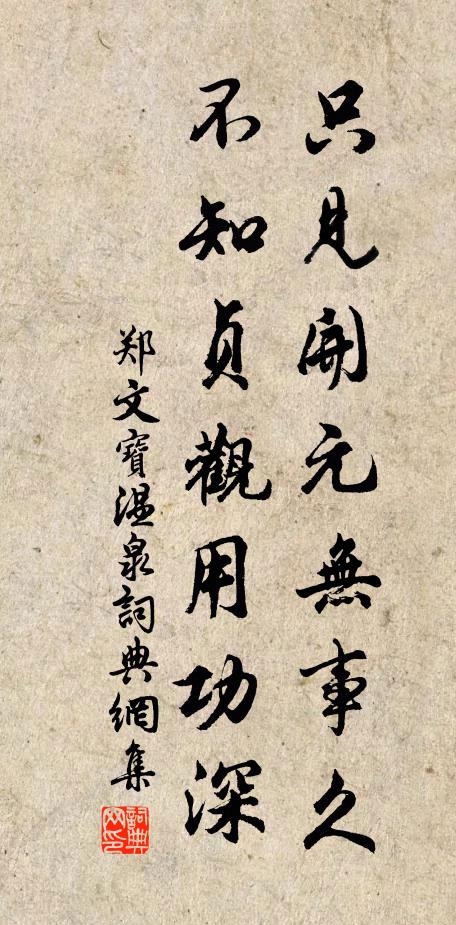 只見開元無事久
不知貞觀用功深
郑文寶温泉詞典網集
詞典网印